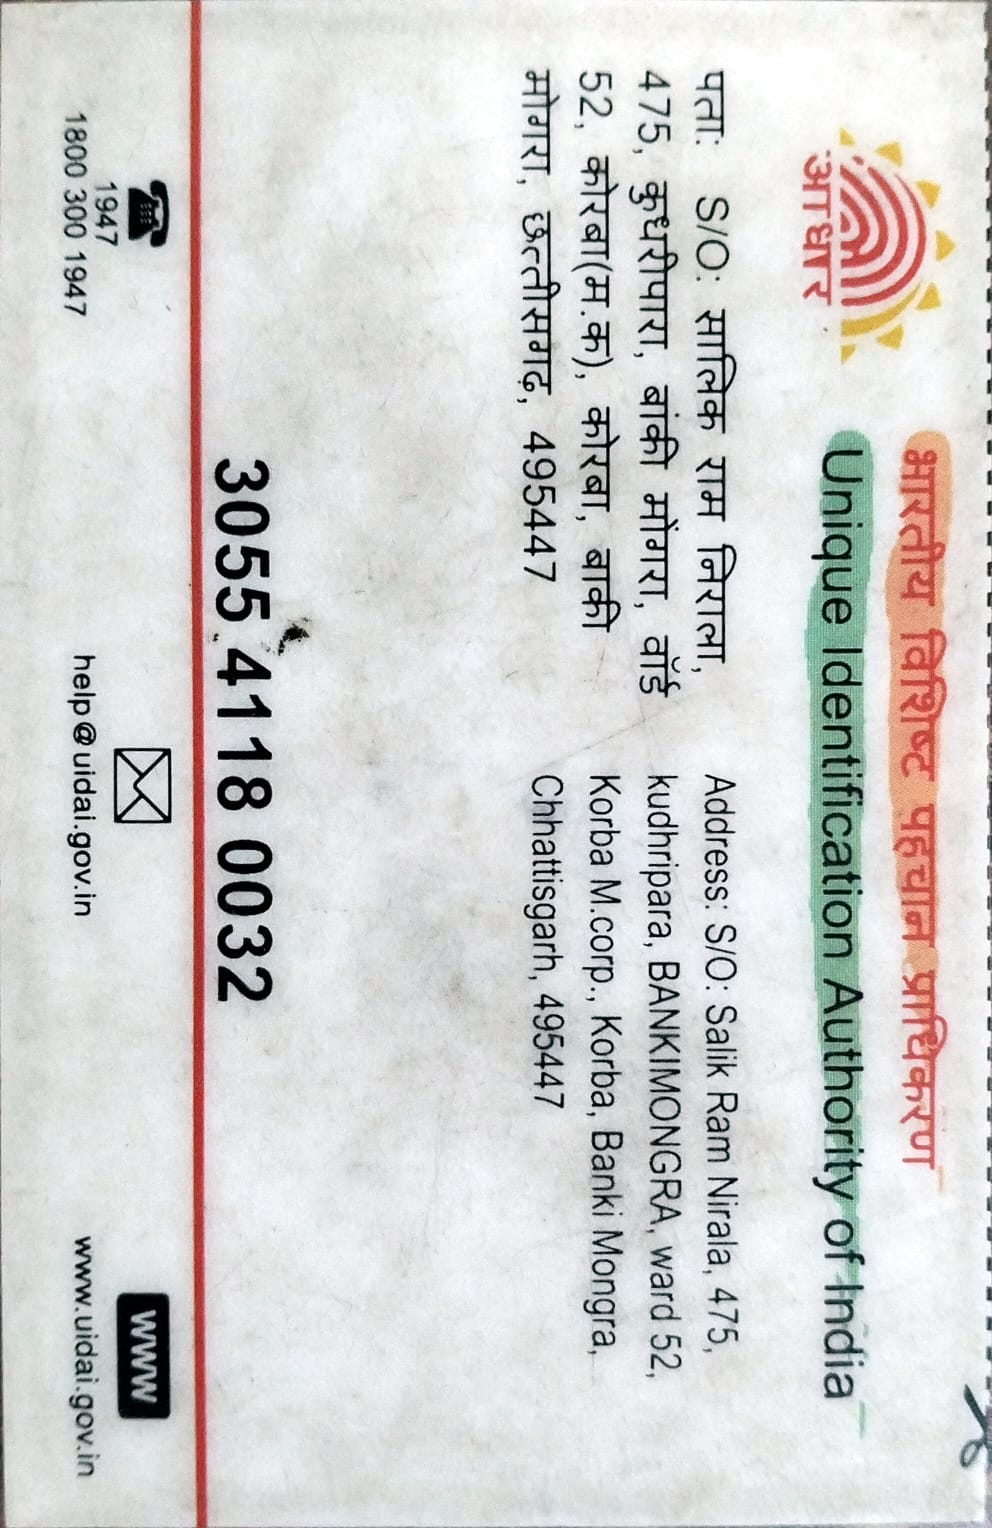 आधार
भारतीय विशिष्ट पहचान प्राधिकरण
Unique Identification Authority of India
पता: S/O: सालिक राम निराला,
475, कुधरीपारा, बांकी मोंगरा, वॉर्ड
52, कोरबा(म.क), कोरबा, बाकी
मोगरा, छत्तीसगढ़, 495447
Address: S/O: Salik Ram Nirala, 475,
kudhripara, BANKIMONGRA, ward 52,
Korba M.corp., Korba, Banki Mongra,
Chhattisgarh, 495447
3055 4118 0032
1947
1800 300 1947
help@uidai.gov.in
www
www.uidai.gov.in